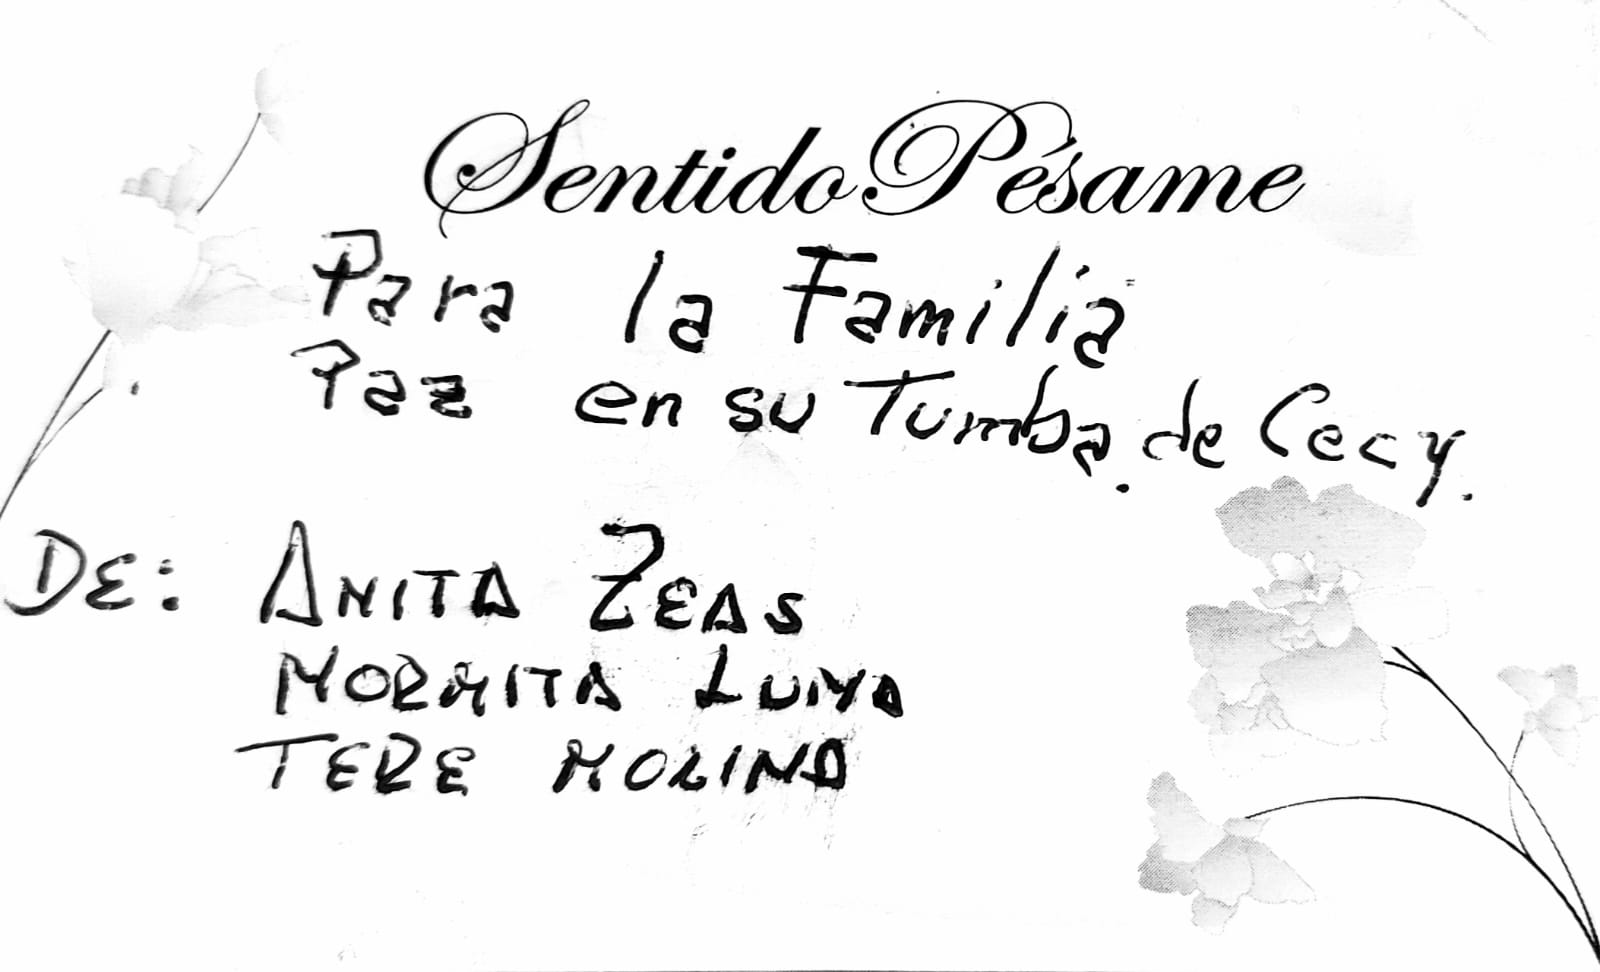 Sentido Pésame
Para la Familia
Paz en su Tumba. de Cecy.
DE: ANITA ZEAS
NORMITA LUNA
TERE MOLINA